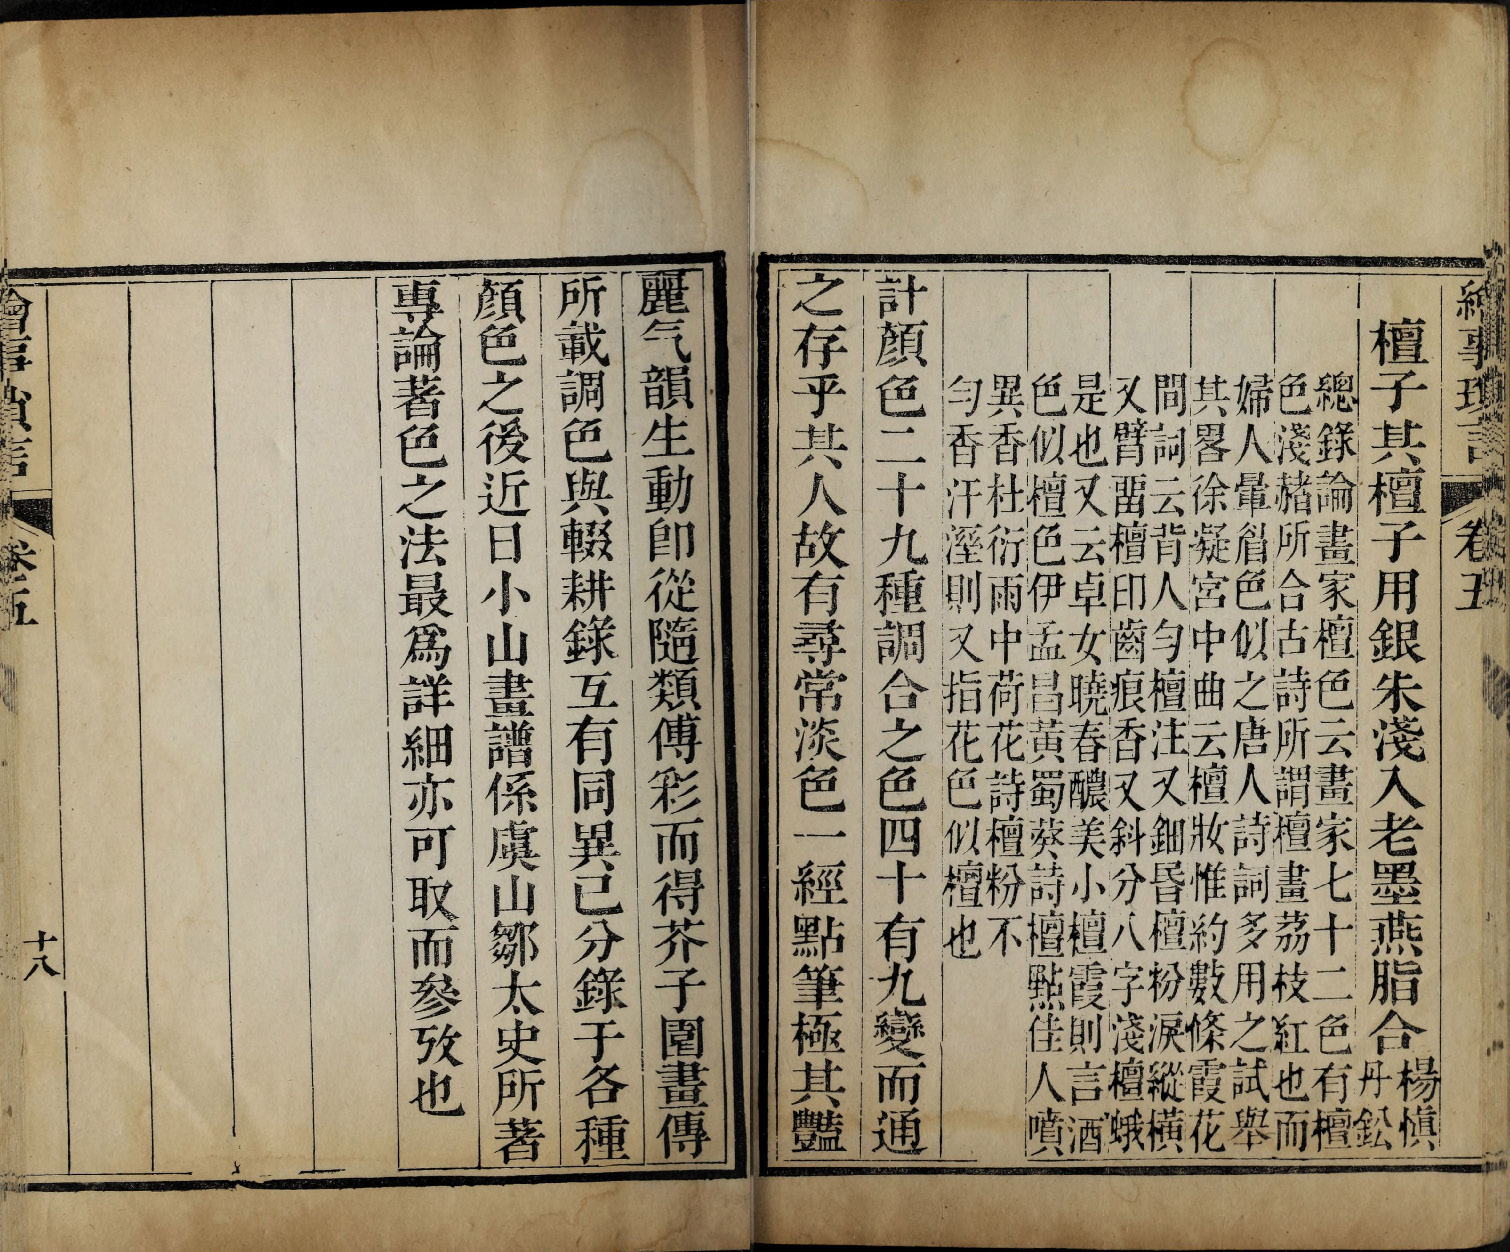 繪事瑣言 卷五
檀子其檀子用銀朱淺入老墨燕脂合
楊慎
丹鉛
總錄論畫家檀色云畫家七十二色有檀
色淺赭所合古詩所謂檀畫荔枝紅也而
婦人暈眉色似之唐人詩詞多用之試舉
其畧徐凝宮中曲云檀妝惟約數條霞花
間詞云背人勻檀注又鈿昬檀粉淚縱橫
又臂畱檀印齒痕香又斜分八字淺檀蛾
是也又云卓女曉春醲美小檀霞則言酒
色似檀色伊孟昌黃蜀葵詩檀點佳人噴
異香杜衍雨中荷花詩檀粉不
勻香汗溼則又指花色似檀也
計顏色二十九種調合之色四十有九變而通
之存乎其人故有尋常淡色一經點筆極其豔
麗气韻生動卽從隨類傅彩而得芥子園畫傳
所載調色與輟耕錄互有同異已分錄于各種
顏色之後近日小山畫譜係虞山鄒太史所著
專論著色之法最爲詳細亦可取而參攷也
繪事瑣言 卷五 十八